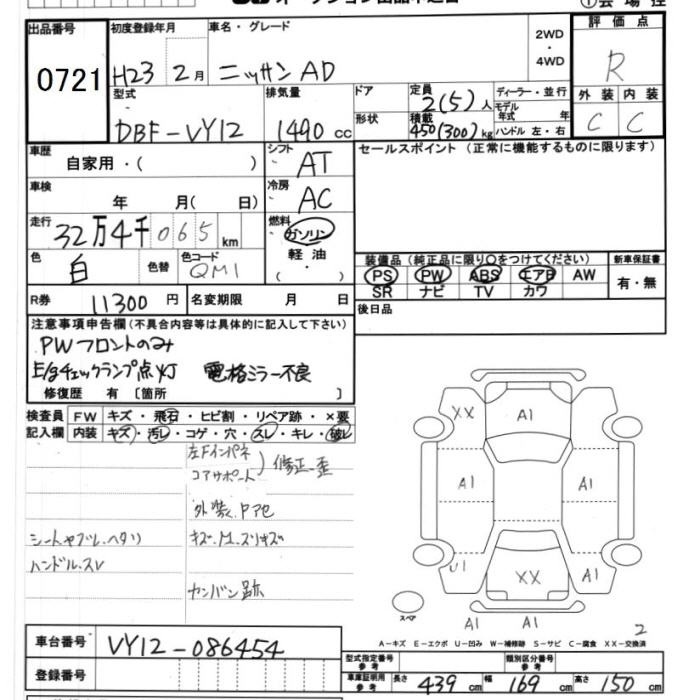 出品番号 初度登録年月 車名・グレード 2WD・4WD 評価点
0721 H23 2月 ニッサン AD R
型式 排気量 ドア 定員 ディーラー・並行 外装 内装
DBF-VY12 1490 cc 形状 2(5)人 モデル年式 年 C C
積載 450(300)kg ハンドル 左・右
車歴 自家用・( ) シフト AT セールスポイント (正常に機能するものに限ります)
車検 年 月( 日) 冷房 AC
走行 32万4千065km 燃料 ガソリン
色 白 色替 色コード QM1 軽油 ・( )
装備品 (純正品に限り○をつけてください) 新車保証書
PS PW ABS エアB AW 有・無
SR ナビ TV カワ
R券 11300円 名変期限 月 日 後日品
注意事項申告欄(不具合内容等は具体的に記入して下さい)
PWフロントのみ
E/gチェックランプ点灯 電格ミラー不良
修復歴 有 〔箇所 〕
検査員 FW キズ・飛石・ヒビ割・リペア跡・×要
記入欄 内装 キズ・汚レ・コゲ・穴・スレ・キレ・破レ
左Fインパネ
コアサポート 修正歪
外装
シートヤブレ.ヘタリ キズ.
ハンドル.スレ
カンバン跡
XX A1
A1 A1
U1 XX A1
A1 A1
スペア
2
A-キズ E-エクボ U-凹み W-補修跡 S-サビ C-腐食 XX-交換済
車台番号 VY12-086454
登録番号
型式指定番号 参考 類別区分番号 参考
車庫証明用 参考 長さ 439 cm 幅 169 cm 高さ 150 cm